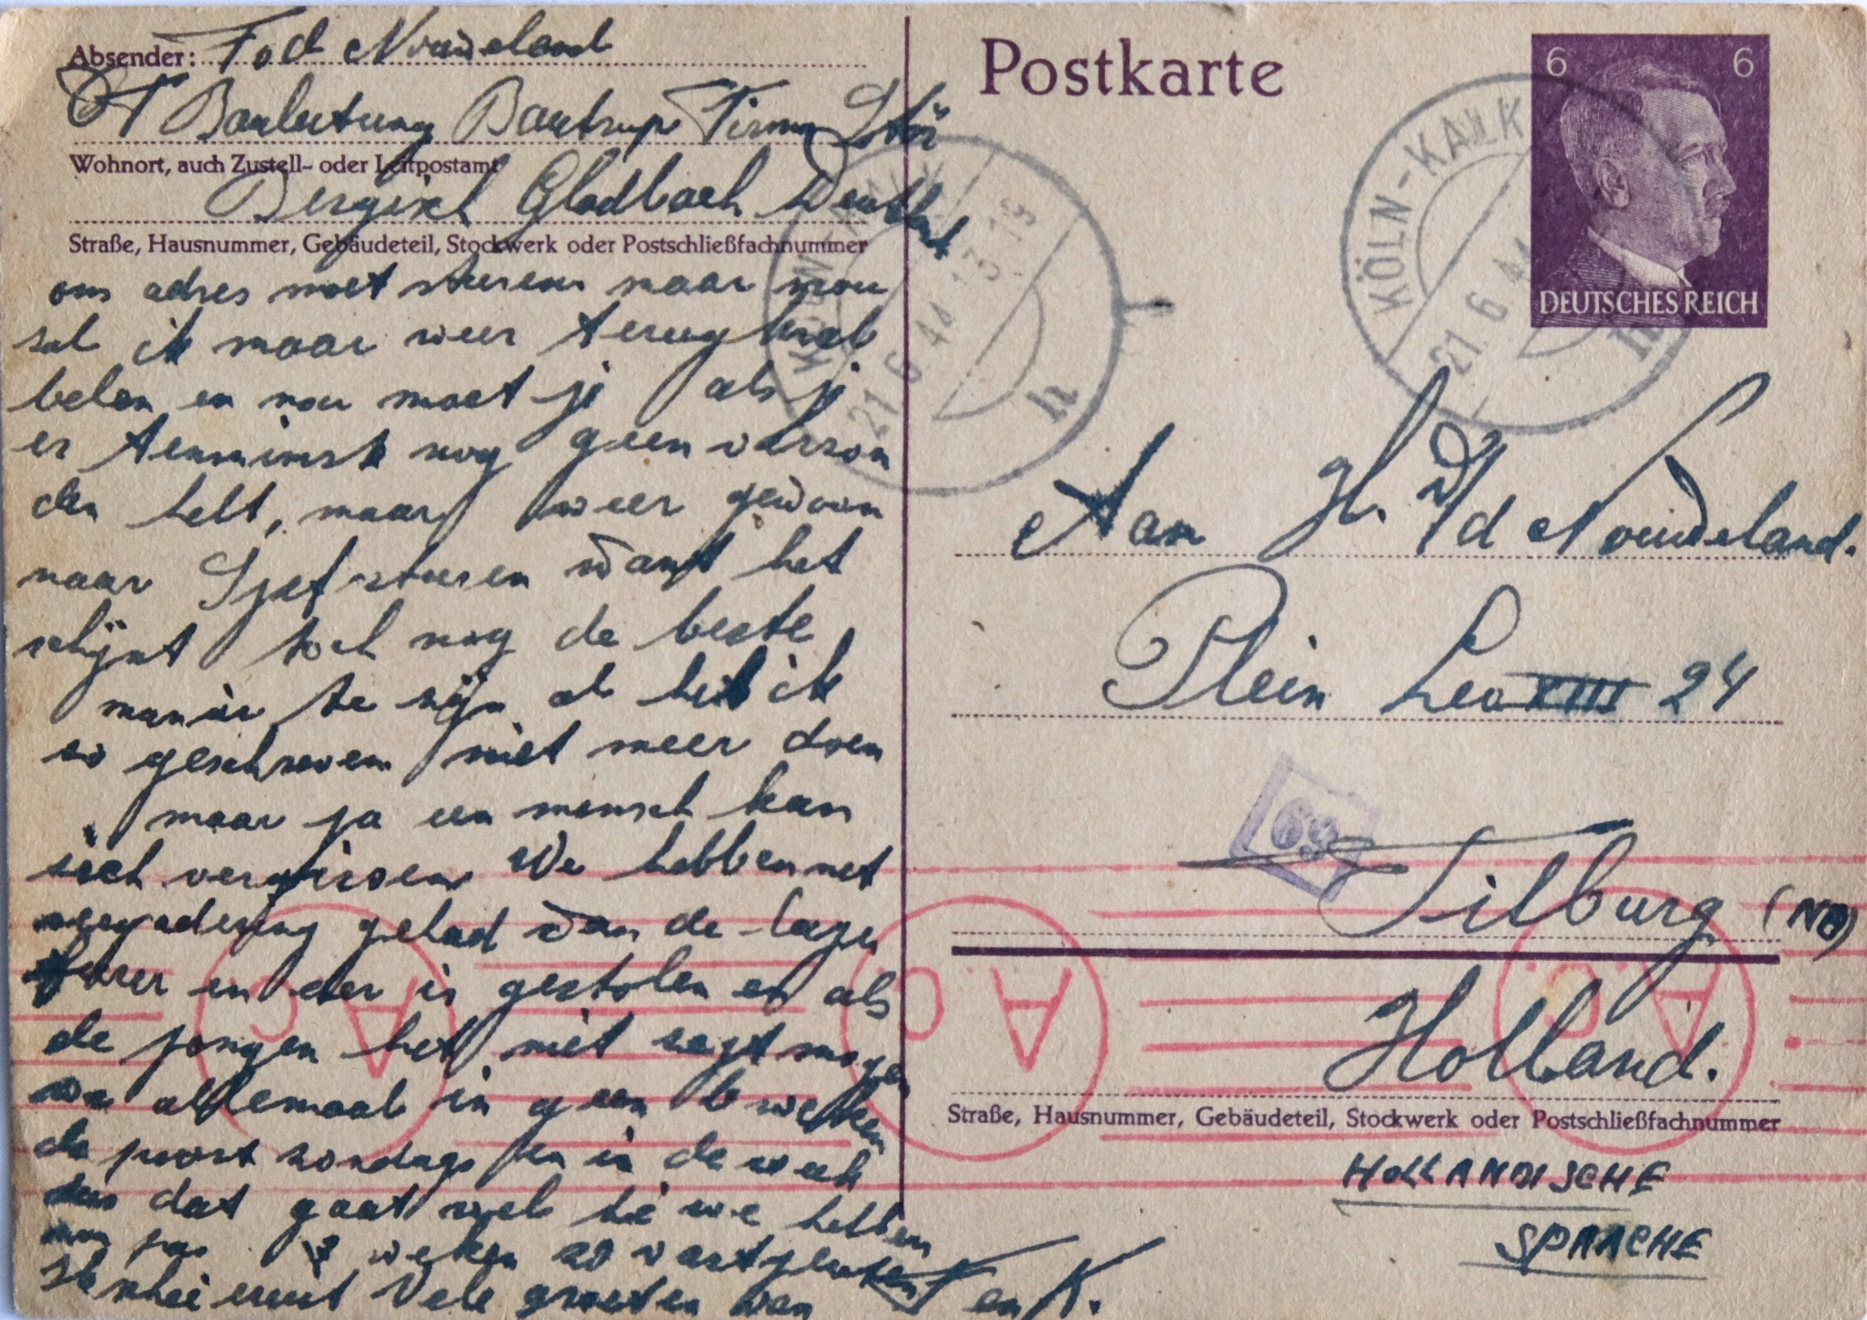 Absender: Fod Nouweland
OT Bauleitung Bautrup Firma Stör
Wohnort, auch Zustell- oder Leitpostamt
Bergisch Gladbach Deutschl
Straße, Hausnummer, Gebäudeteil, Stockwerk oder Postschließfachnummer
ons adres moet sturen naar nou
sal ik maar weer terug krab
belen en nou moet je als je
er tenminste nog geen verson
den hebt, maar weer gewoon
naar Sjef sturen want het
schijnt toch nog de beste
manier te zijn al heb ik
so geschreven niet meer doen
maar ja een mensch kan
sich vergissen We hebben net
vergadering gehad van de lager
fürer en der is gestolen en als
de jongen het niet segt mogen
we allemaal in geen 6 weken
de poort sondags en in de week
dus dat gaat wel hè we hebben
nou pas 7 weken zo vastgezeten
Ik schei eruit Vele groeten van F en K.
Postkarte
6 6
DEUTSCHES REICH
KÖLN-KALK
21.6.44
h
KÖLN-KALK
21.6.44.13-19
h
Aan H. v/d Nouweland.
Plein Leo XIII 24
69
Tilburg (NB)
Holland.
Straße, Hausnummer, Gebäudeteil, Stockwerk oder Postschließfachnummer
HOLLANDISCHE
SPRACHE
A C
A C
A C